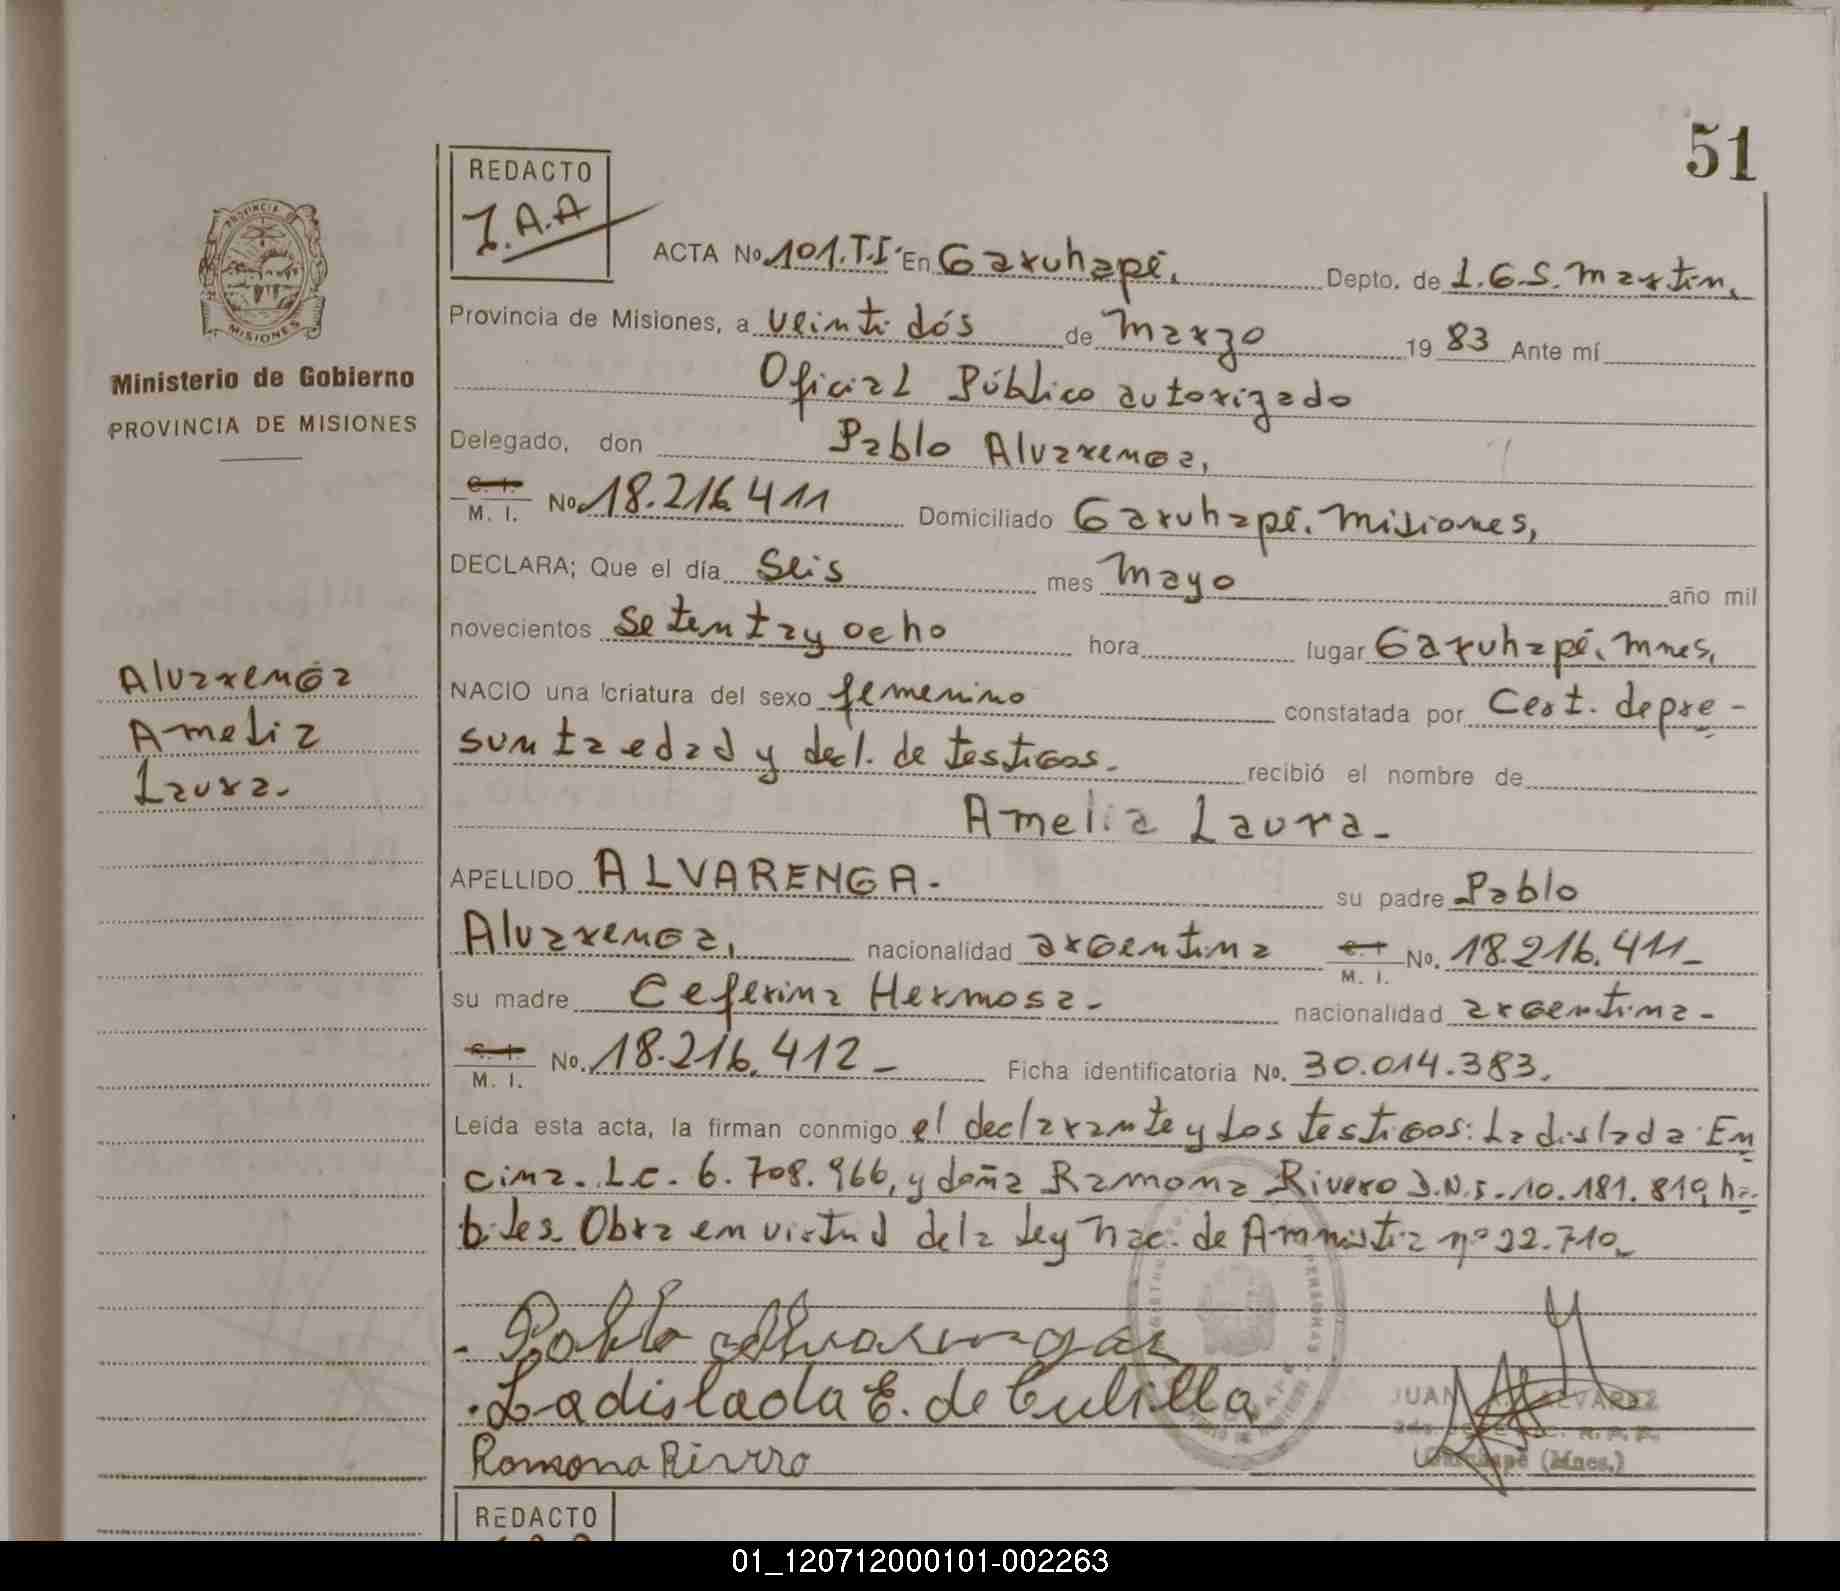 51
REDACTO
J.A.A
ACTA No 101.T.I. En Garuhapé, Depto. de L.G.S. Martin,
Provincia de Misiones, a veinti dós de Marzo 19 83 Ante mí
Oficial Público autorizado
Delegado, don Pablo Alvarenga,
C. I.
M. I. No. 18.216.411 Domiciliado Garuhapé. Misiones,
DECLARA; Que el día Seis mes Mayo año mil
novecientos setentay ocho hora lugar Garuhapé, Mnes,
NACIO una criatura del sexo femenino constatada por Cert. de pre-
sunta edad y decl. de testigos. recibió el nombre de
Amelia Laura.
APELLIDO ALVARENGA. su padre Pablo
Alvarenga, nacionalidad argentina C. I.
M. I. No. 18.216.411_
su madre Ceferina Hermosa. nacionalidad argentina.
C. I.
M. I. No. 18.216.412_ Ficha identificatoria No. 30.014.383.
Leída esta acta, la firman conmigo el declarante y Los testigos: Ladislada En
cina. L.C. 6.708.966, y doña Ramona Rivero D.N.I. 10.181.819, há-
biles. Obra en virtud de la Ley Nac. de Amnistia nº 22.710_
Pablo Alvarenga
Ladislada E. de Cubilla
Ramona Rivero
JUAN ALVAREZ
Garuhapé (Mnes.)
PROVINCIA
MISIONES
Ministerio de Gobierno
PROVINCIA DE MISIONES
Alvarenga
Amelia
Laura.
REDACTO
01_120712000101-002263